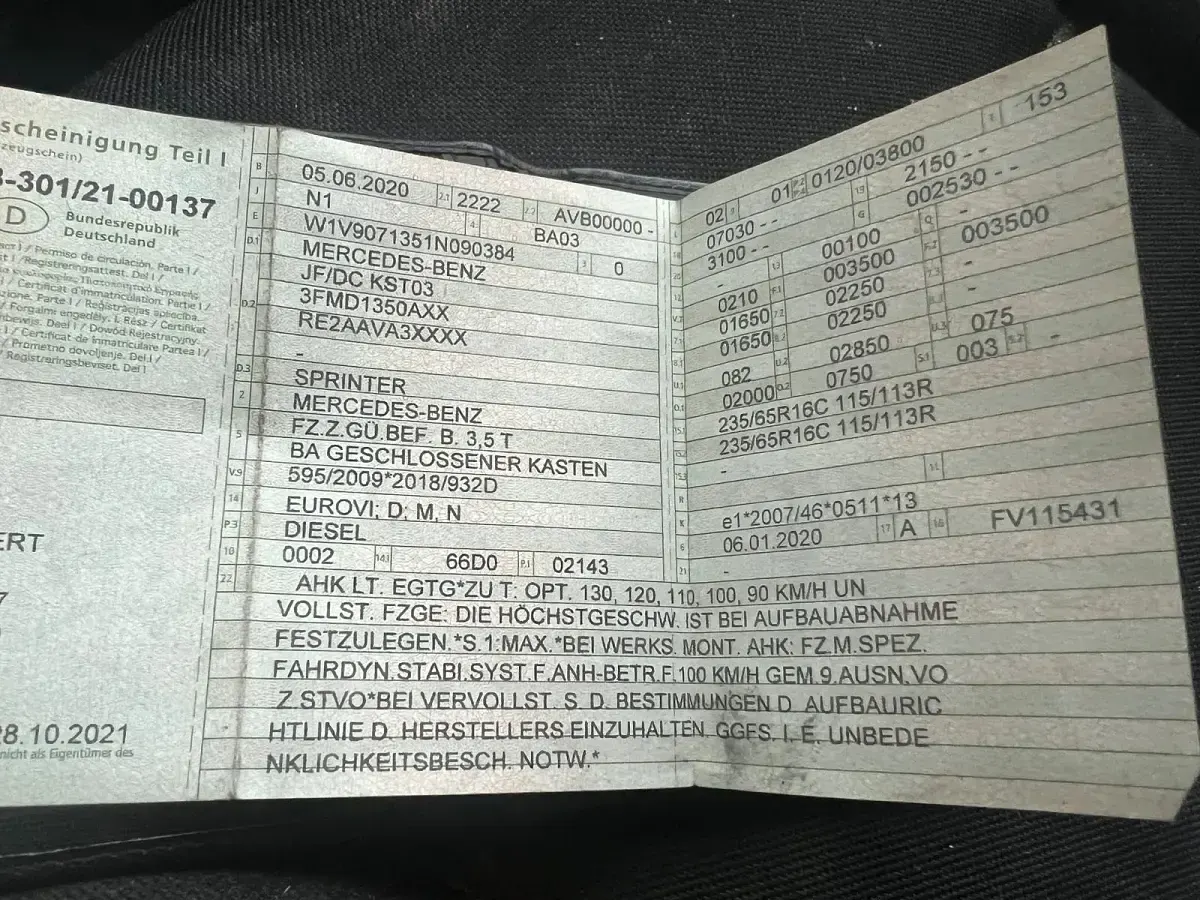 scheinigung Teil I
zeugschein)
-301/21-00137
D
Bundesrepublik
Deutschland
/ Permiso de circulación. Parte I /
/ Registreringsattest. Del I /
/ Certificat d'immatriculation. Partie I /
zione. Parte I / Reģistrācijas apliecība.
/ Forgalmi engedély. I. Rész / Certifikat
bewijs. Deel I / Dowód Rejestracyjny.
/ Certificat de înmatriculare Partea I /
/ Prometno dovoljenje. Del I /
/ Registreringsbeviset. Del I
ERT
7
8.10.2021
nicht als Eigentümer des
B 05.06.2020 2.1 2222 2.2 AVB00000 -
J N1 4 BA03
E W1V9071351N090384 3 0
D.1 MERCEDES-BENZ
JF/DC KST03
D.2 3FMD1350AXX
RE2AAVA3XXXX
-
D.3 SPRINTER
2 MERCEDES-BENZ
5 FZ.Z.GÜ.BEF. B. 3,5 T
BA GESCHLOSSENER KASTEN
V.9 595/2009*2018/932D
14 EUROVI; D; M, N
P.3 DIESEL
10 0002 14.1 66D0 P.1 02143
L 02 9 01 P.2 P.4 0120/03800 T 153
18 07030 - - 19 2150 - -
20 3100 - - G 002530 - -
12 - 13 00100 Q -
V.7 0210 F.1 003500 F.2 003500
7.1 01650 7.2 02250 7.3 -
8.1 01650 8.2 02250 8.3 -
U.1 082 U.2 02850 U.3 075
O.1 02000 O.2 0750 S.1 003 S.2 -
15.1 235/65R16C 115/113R
15.2 235/65R16C 115/113R
15.3 -
R 11
K e1*2007/46*0511*13
6 06.01.2020 17 A 16 FV115431
21 -
22 AHK LT. EGTG*ZU T: OPT. 130, 120, 110, 100, 90 KM/H UN
VOLLST. FZGE: DIE HÖCHSTGESCHW. IST BEI AUFBAUABNAHME
FESTZULEGEN.*S.1:MAX.*BEI WERKS. MONT. AHK: FZ.M.SPEZ.
FAHRDYN.STABI.SYST.F.ANH-BETR.F.100 KM/H GEM.9.AUSN.VO
Z.STVO*BEI VERVOLLST. S. D. BESTIMMUNGEN D. AUFBAURIC
HTLINIE D. HERSTELLERS EINZUHALTEN. GGFS. I. E. UNBEDE
NKLICHKEITSBESCH. NOTW.*